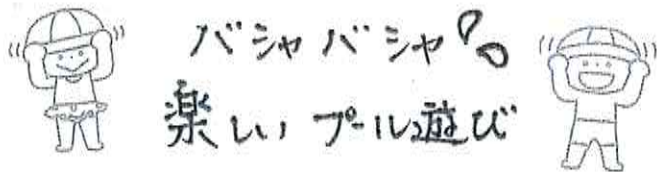 バシャバシャ
楽しいプール遊び